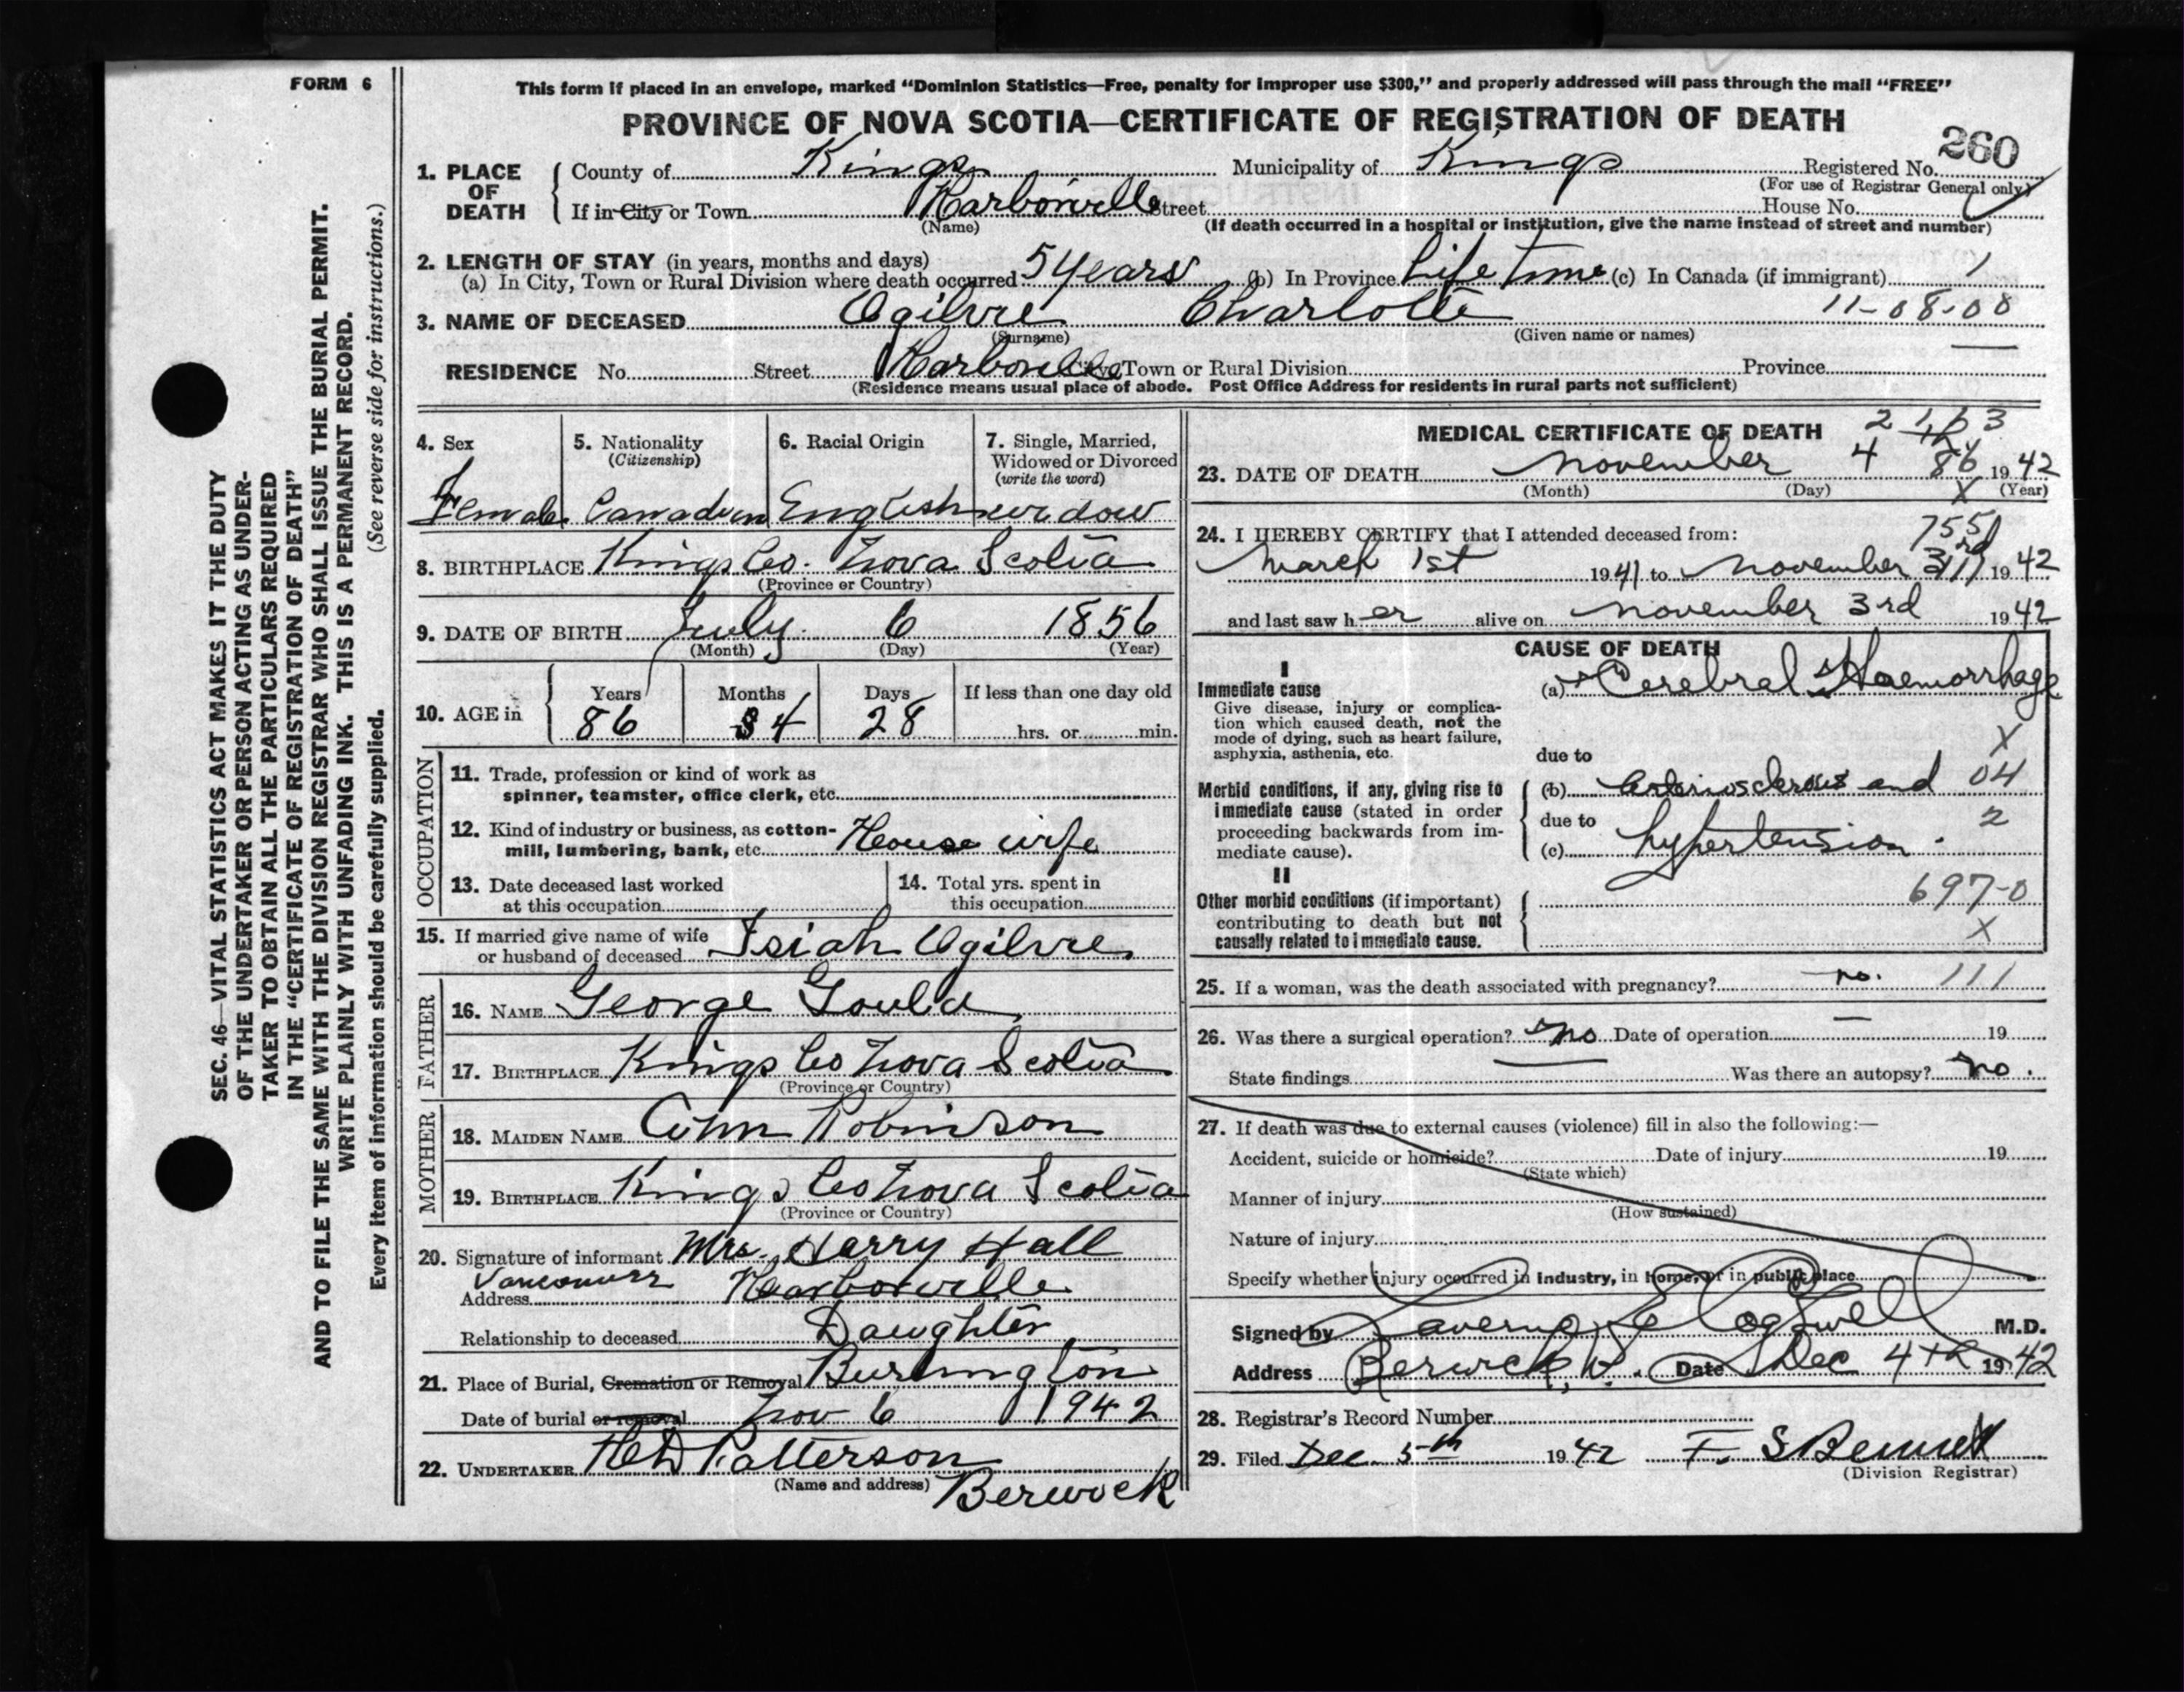 FORM 6
This form if placed in an envelope, marked "Dominion Statistics—Free, penalty for improper use $300," and properly addressed will pass through the mail "FREE"
PROVINCE OF NOVA SCOTIA—CERTIFICATE OF REGISTRATION OF DEATH
260
1. PLACE OF DEATH County of Kings Municipality of Kings Registered No.
(For use of Registrar General only)
If in City or Town Harborville Street House No.
(Name) (If death occurred in a hospital or institution, give the name instead of street and number)
2. LENGTH OF STAY (in years, months and days)
(a) In City, Town or Rural Division where death occurred 5 years (b) In Province Life time (c) In Canada (if immigrant) 1
3. NAME OF DECEASED Ogilvie Charlotte 11-08-08
(Surname) (Given name or names)
RESIDENCE No. Street Harborville City, Town or Rural Division Province
(Residence means usual place of abode. Post Office Address for residents in rural parts not sufficient)
4. Sex
Female
5. Nationality
(Citizenship)
Canadian
6. Racial Origin
English
7. Single, Married,
Widowed or Divorced
(write the word)
widow
8. BIRTHPLACE Kings Co. Nova Scotia
(Province or Country)
9. DATE OF BIRTH July 6 1856
(Month) (Day) (Year)
10. AGE in Years Months Days If less than one day old
86 4 28 hrs. or min.
OCCUPATION
11. Trade, profession or kind of work as
spinner, teamster, office clerk, etc.
12. Kind of industry or business, as cotton-
mill, lumbering, bank, etc. House wife
13. Date deceased last worked
at this occupation
14. Total yrs. spent in
this occupation
15. If married give name of wife
or husband of deceased Isiah Ogilvie
FATHER
16. NAME George Gould
17. BIRTHPLACE Kings Co Nova Scotia
(Province or Country)
MOTHER
18. MAIDEN NAME Ann Robinson
19. BIRTHPLACE Kings Co Nova Scotia
(Province or Country)
20. Signature of informant Mrs. Harry Hall
Vancouver
Address Harborville
Relationship to deceased Daughter
21. Place of Burial, Cremation or Removal Burlington
Date of burial or removal Nov 6 1942
22. UNDERTAKER Patterson
(Name and address) Berwick
MEDICAL CERTIFICATE OF DEATH
23. DATE OF DEATH November 4 86 1942
(Month) (Day) (Year)
24. I HEREBY CERTIFY that I attended deceased from: 755
March 1st 1941 to November 3rd 1942
and last saw her alive on November 3rd 1942
CAUSE OF DEATH
I
Immediate cause
Give disease, injury or complica-
tion which caused death, not the
mode of dying, such as heart failure,
asphyxia, asthenia, etc.
(a) Cerebral Haemorrhage
X
due to
Morbid conditions, if any, giving rise to
immediate cause (stated in order
proceeding backwards from im-
mediate cause).
(b) Arteriosclerosis and 04
due to 2
(c) hypertension.
II
Other morbid conditions (if important)
contributing to death but not
causally related to immediate cause.
697-0
X
25. If a woman, was the death associated with pregnancy? no. 111
26. Was there a surgical operation? no Date of operation — 19
State findings Was there an autopsy? no.
27. If death was due to external causes (violence) fill in also the following:—
Accident, suicide or homicide? Date of injury 19
(State which)
Manner of injury
(How sustained)
Nature of injury
Specify whether injury occurred in Industry, in home, or in public place
Signed by Cogswell M.D.
Address Berwick, Date Dec 4th 1942
28. Registrar's Record Number
29. Filed Dec 5th 1942 F. S Bennett
(Division Registrar)
SEC. 46—VITAL STATISTICS ACT MAKES IT THE DUTY
OF THE UNDERTAKER OR PERSON ACTING AS UNDER-
TAKER TO OBTAIN ALL THE PARTICULARS REQUIRED
IN THE "CERTIFICATE OF REGISTRATION OF DEATH"
AND TO FILE THE SAME WITH THE DIVISION REGISTRAR WHO SHALL ISSUE THE BURIAL PERMIT.
WRITE PLAINLY WITH UNFADING INK. THIS IS A PERMANENT RECORD.
Every item of information should be carefully supplied. (See reverse side for instructions.)